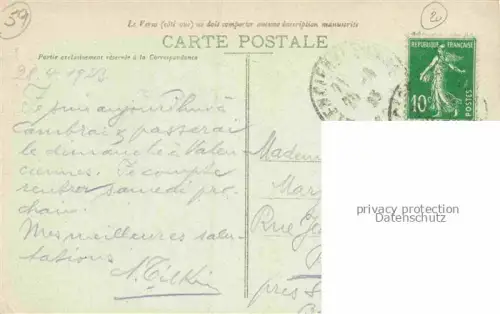 59
20
Le Verso (côté vue) ne doit comporter aucune inscription manuscrite
CARTE POSTALE
Partie exclusivement réservée à la Correspondance
REPUBLIQUE FRANÇAISE
10c
POSTES
28.4.1923
Je suis aujourd'hui à
Cambrai & passerai
le dimanche à Valen
ciennes. Je compte
rentrer samedi pro
chain.
Mes meilleures salu
tations
Madem
Mar
Rue Je
près S
privacy protection
Datenschutz